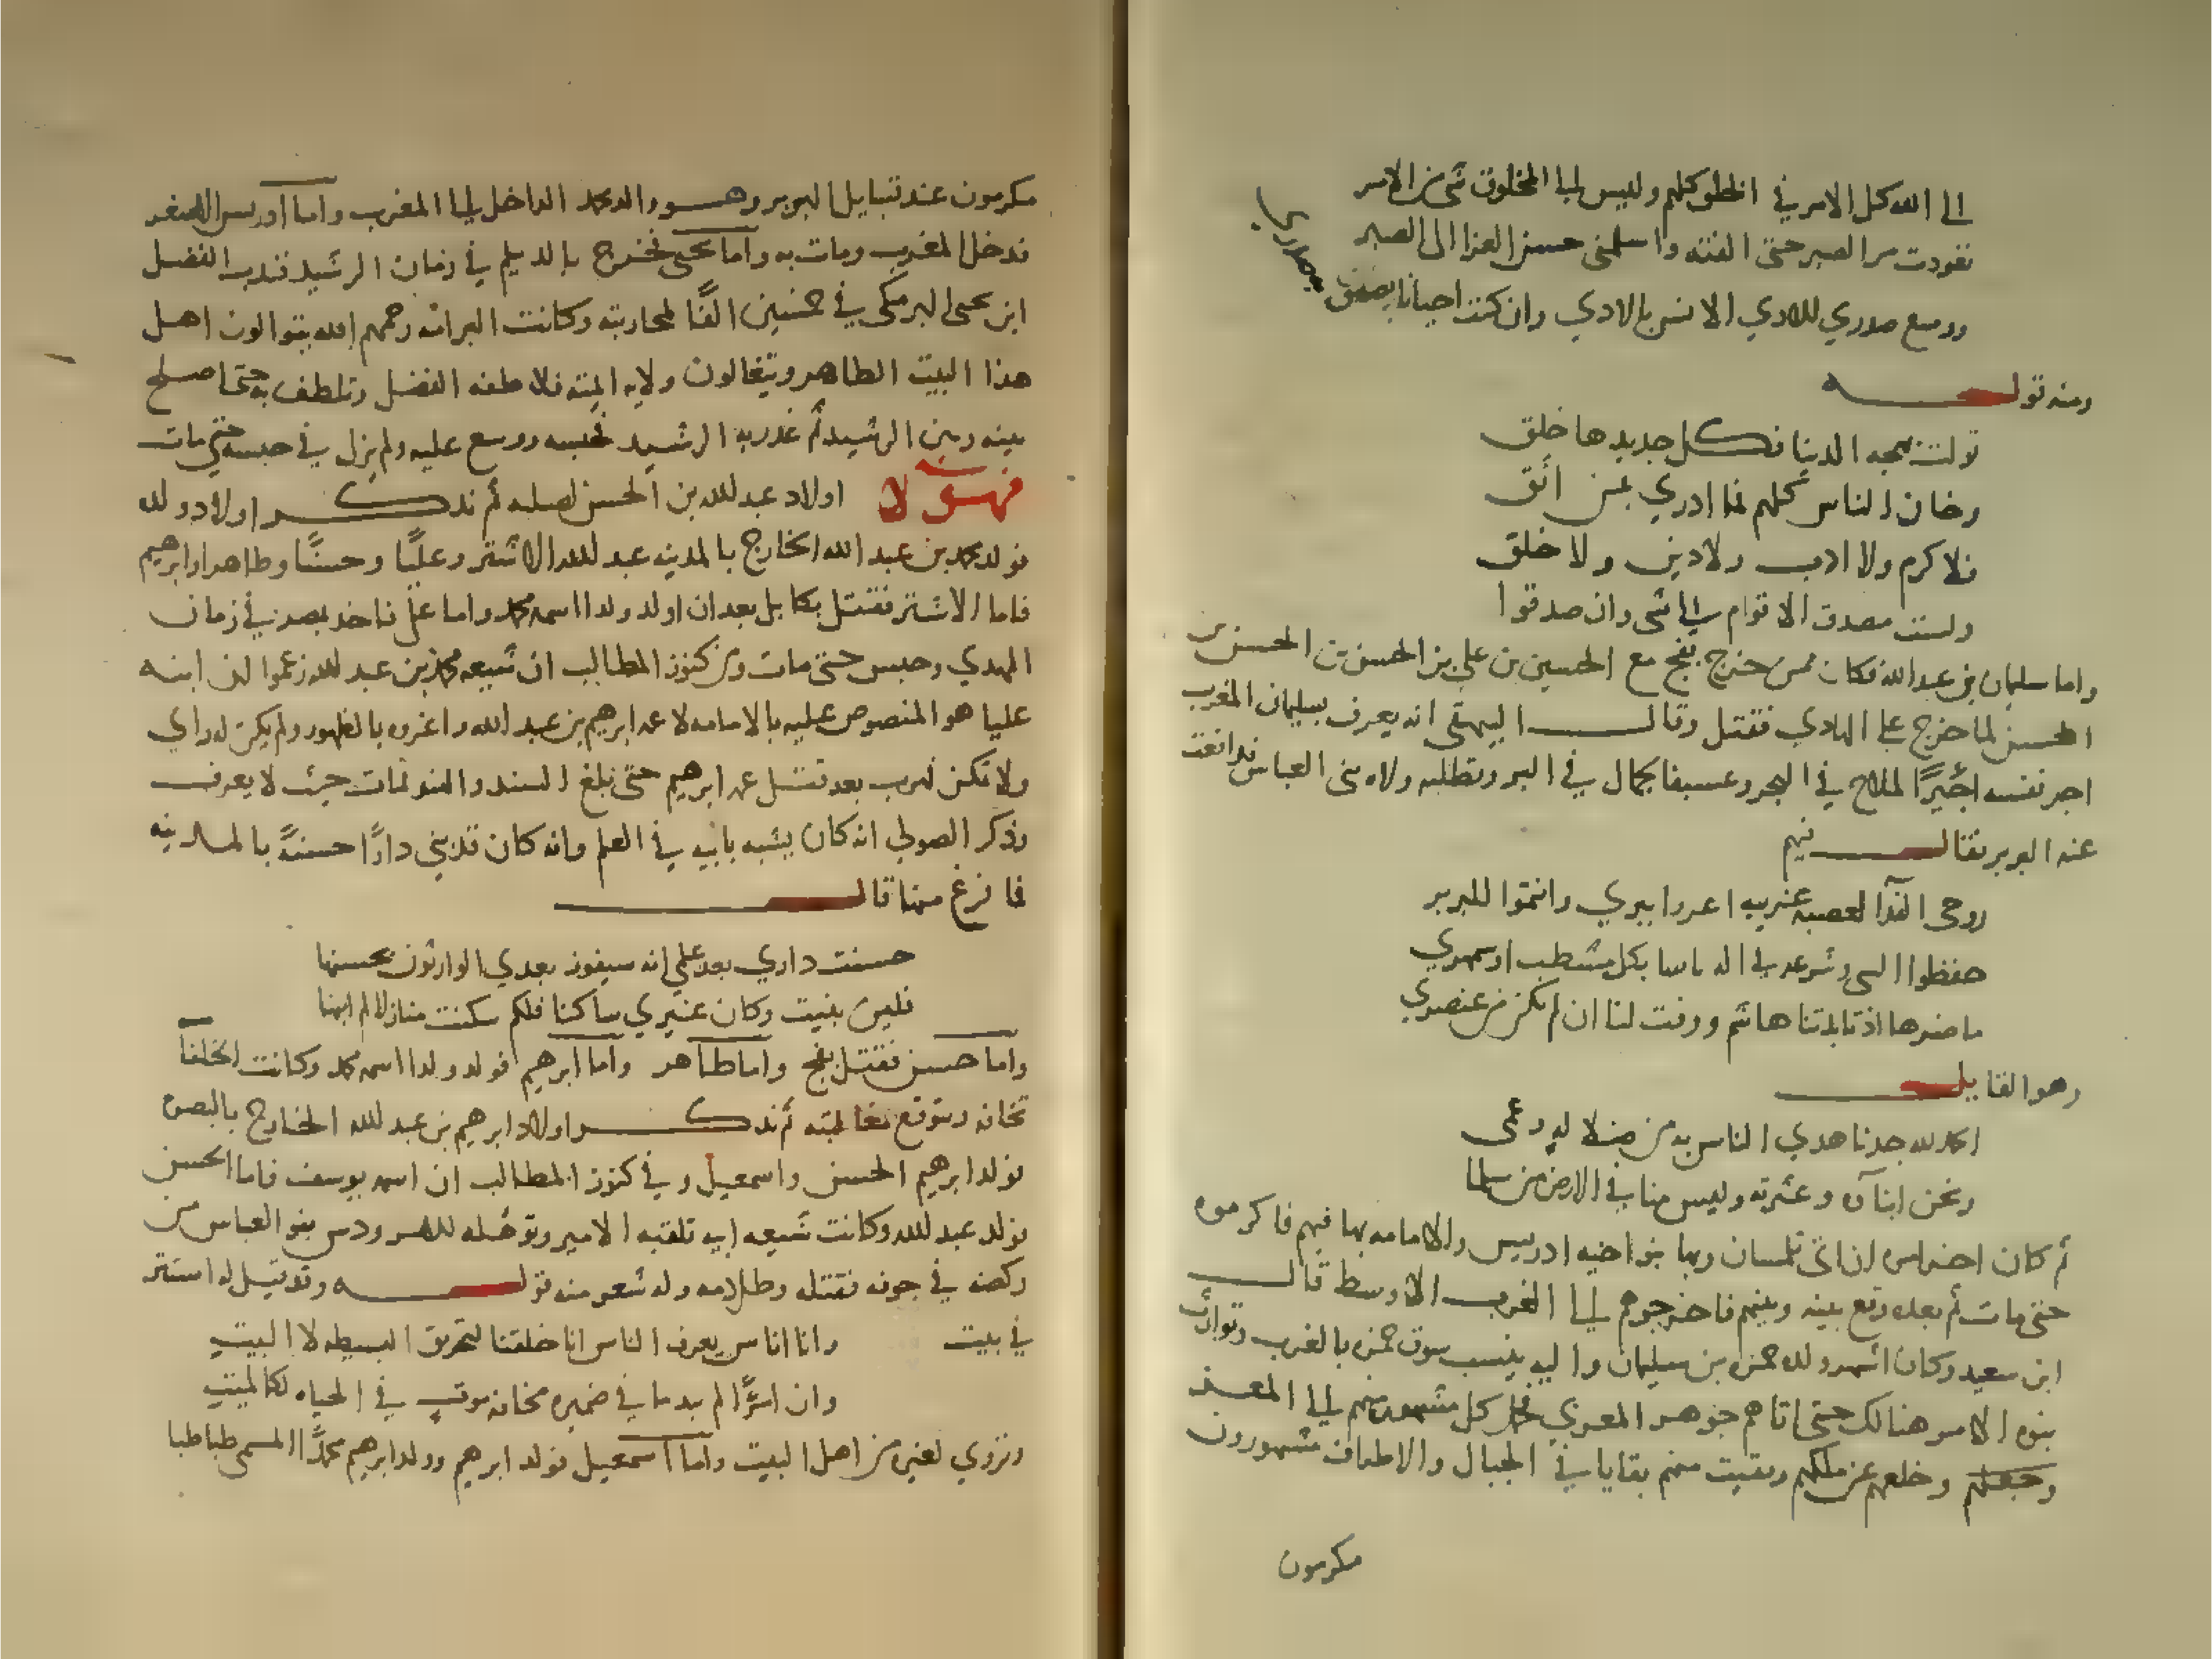 الى الله كل الامر في الخلق كلهم وليس الى المخلوق شئ من الامر
تعودت مر الصبر حتى الفته واسلمنى حسن العزا الى الصبر
ووسع صدري للاذي الانس بالاذي وان كنت احيانا يضيق به صدري
ومنه قوله
تولت بهجه الدنيا فكل جديدها خلق
وخان الناس كلهم فما ادري بمن اثق
فلا كرم ولا ادب ولا دين ولا خلق
ولست مصدق الاقوام في شى وان صدقوا
واما سليمان بن عبد الله فكان ممن خرج بفخ مع الحسين بن علي بن الحسن بن الحسن بن
الحسن لما خرج على الهادي فقتل وقال البيهقى انه يعرف بسليمان المغرب
اجر نفسه اجيرًا لملاح في البحر وعسيفا لجمال في البر وتطلبه ولاه بنى العباس فدافعت
عنه البربر فقال فيهم
روحى الفدآ لعصبة عربيه اعدوا ببري وانتموا للبربر
حفظوا النبى وشرعه في اله بكل مشطب اوسمهري
ما ضرها اذ قابلتنا هاشم ووفت لنا ان لم تكن من عنصري
وهو القايل
الحمد لله جدنا هدي الناس به من ضلاله وعمى
ونحن ابنآه وعترته وليس منا في الارض من سلما
ثم كان اخر امره ان اتى تلمسان وبها بنو اخيه ادريس والامامه بها فيهم فاكرموه
حتى مات ثم بعده وقع بينه وبينهم فاخرجوهم الى الغرب الاوسط قال
ابن سعيد وكان اشهر ولده حمزه بن سليمان واليه ينسب سوق حمزه بالغرب وتوارث
بنوه الامر هنالك حتى اتاهم جوهر المعزي فحمل كل مشهور منهم الى المعز
وخلعهم عن ملكهم وبقيت منهم بقايا في الجبال والاطراف مشهورون
مكرمون
مكرمون عند قبايل البربر وهو والد محمد الداخل الى المغرب واما ادريس الاصغر
فدخل المغرب ومات به واما يحيى فخرج بالديلم في زمان الرشيد فندب الفضل
ابن يحيى البرمكي في خمسين الفًا لمحاربته وكانت البرامكه رحمهم الله يتوالون اهل
هذا البيت الطاهر ويتغالون ولايه اليته فلاطفه الفضل وتلطف به حتى اصلح
بينه وبين الرشيد ثم غدر به الرشيد فحبسه ووسع عليه ولم يزل في حبسه حتى مات
فهولا اولاد عبد الله بن الحسن لصلبه ثم نذكر اولاد ولده
فولد محمد بن عبد الله الخارج بالمدينه عبد الله الاشتر وعليًا وحسنًا وطاهرا وابرهيم
فاما الاشتر فقتل بكابل بعد ان اولد ولدا اسمه محمد واما على فاخذ بمصر في زمان
المهدي وحبس حتى مات وفي كنوز المطالب ان شيعه محمد بن عبد الله زعموا ان ابنه
عليا هو المنصوص عليه بالامامه لا عمه ابرهيم بن عبد الله واغروه بالظهور ولم يكن له راي
ولا تمكن فهرب بعد قتل عمه ابرهيم حتى بلغ السند والهند فمات حيث لا يعرف
وذكر الصولي انه كان يشبه بابيه في العلم وانه كان قد بنى دارًا حسنةً بالمدينه
فلما فرغ منها قال
حسنت داري بعد علمي انه سيفوز بعدي الوارثون بحسنها
فلين بنيت وكان غيري ساكنا فلكم سكنت منازلا لم ابنها
واما حسن فقتل بفخ واما طاهر واما ابرهيم فولد ولدا اسمه محمد وكانت الخلفآ
تخافه وتتوقع ثم نذكر اولاد ابرهيم بن عبد الله الخارج بالبصره
فولد ابرهيم الحسن واسمعيل وفي كنوز المطالب ان اسمه يوسف فاما الحسن
فولد عبد الله وكانت شيعه ابيه تلقبه الامير وتوهله للامر ودس بنو العباس من
ركضه في جوفه فقتله وظلامه وله شعر منه قوله وقد قيل له استتر
في بيت وانا اناس يعرف الناس انا خلقنا لتحريق البسيطه لا البيت
وان امرًا لم يبد ما في ضميره مخافه موت في الحياه لكالميت
وتروي لغيره من اهل البيت واما اسمعيل فولد ابرهيم وولد ابرهيم محمدًا المسمى طباطبا